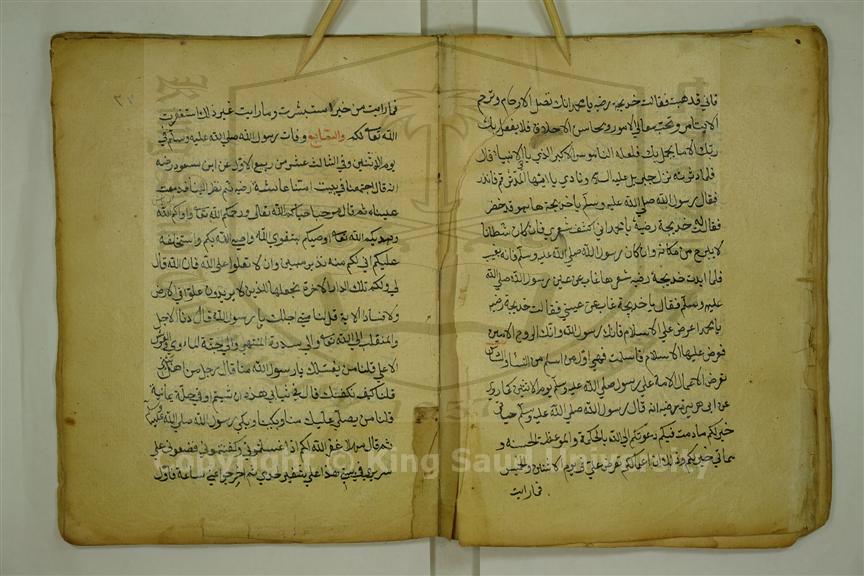 فاني قد هبت فقالت خديجة رضيه يا محمد انك تصل الارحام وترحم
الايتام وتحب معالي الامور ومحاسن الاخلاق فلا يفعل بك
ربك الا ما يجمل بك فلعله الناموس الاكبر الذي يأتي الانبياء قال
فلما دثرته نزل جبريل عليه السلام ونادى يا ايها المدثر قم فانذر
فقال رسول الله صلى الله عليه وسلم يا خديجة ها هو قد حضر
فقالت خديجة رضيه يا محمد اني اكشف شعري فان كان شيطانا
لا يبرح من مكانه وان كان رسول الله فانه يغيب
فلما ابدت خديجة رضيه شعرها غاب عن عين رسول الله صلى الله
عليه وسلم فقال يا خديجة غاب عن عيني فقالت خديجة رضيه
يا محمد اعرض علي الاسلام فانك رسول الله وانه الروح الامين
فعرض عليها الاسلام فاسلمت فهي اول من اسلم من النساء
تعرض الاعمال الامة على رسول صلى الله عليه وسلم يوم الاثنين كما روي
عن ابي هريرة رضيه انه قال رسول الله صلى الله عليه وسلم حياتي
خير لكم ما دمت فيكم دعوتكم الى الله بالحكمة والموعظة الحسنة و
مماتي خير لكم وذلك ان اعمالكم تعرض علي في يوم الاثنين والخميس
فما رايت
فما رايت من خير استبشرت وما رايت غير ذلك استغفرت
الله تعالى لكم والسابع وفات رسول الله صلى الله عليه وسلم في
يوم الاثنين وفي الثالث عشر من ربيع الاول عن ابن مسعود رضيه
انه قال اجتمعنا في بيت امنا عائشة رضيه ثم نظر الينا فدمعت
عيناه ثم قال مرحبا حياكم الله تعالى ورحمكم الله تعالى واواكم الله
وهديكم الله تعالى اوصيكم بتقوى الله واوصي الله بكم واستخلفه
عليكم اني لكم منه نذير مبين وان لا تعلوا على الله فان الله قال
لي ولكم تلك الدار الاخرة نجعلها للذين لا يريدون علوا في الارض
ولا فسادا الاية قلنا متى اجلك يا رسول الله قال دنا الاجل
والمنقلب الى الله تعالى والى سدرة المنتهى والى جنة المأوى
الاعلى قلنا من يغسلك يا رسول الله منا قال رجل من اهل
قلنا كيف نكفنك قال في ثيابي هذه ان شئتم او في حلة يمانية
قلنا من يصلي عليك منا وبكينا وبكى رسول الله صلى الله عليه
ثم قال مهلا غفر الله لكم اذا غسلتموني وكفنتموني فضعوني على
سريري في بيتي هذا على شفير ثم اخرجوا عني ساعة فاول
Copyright © King Saud University
1957